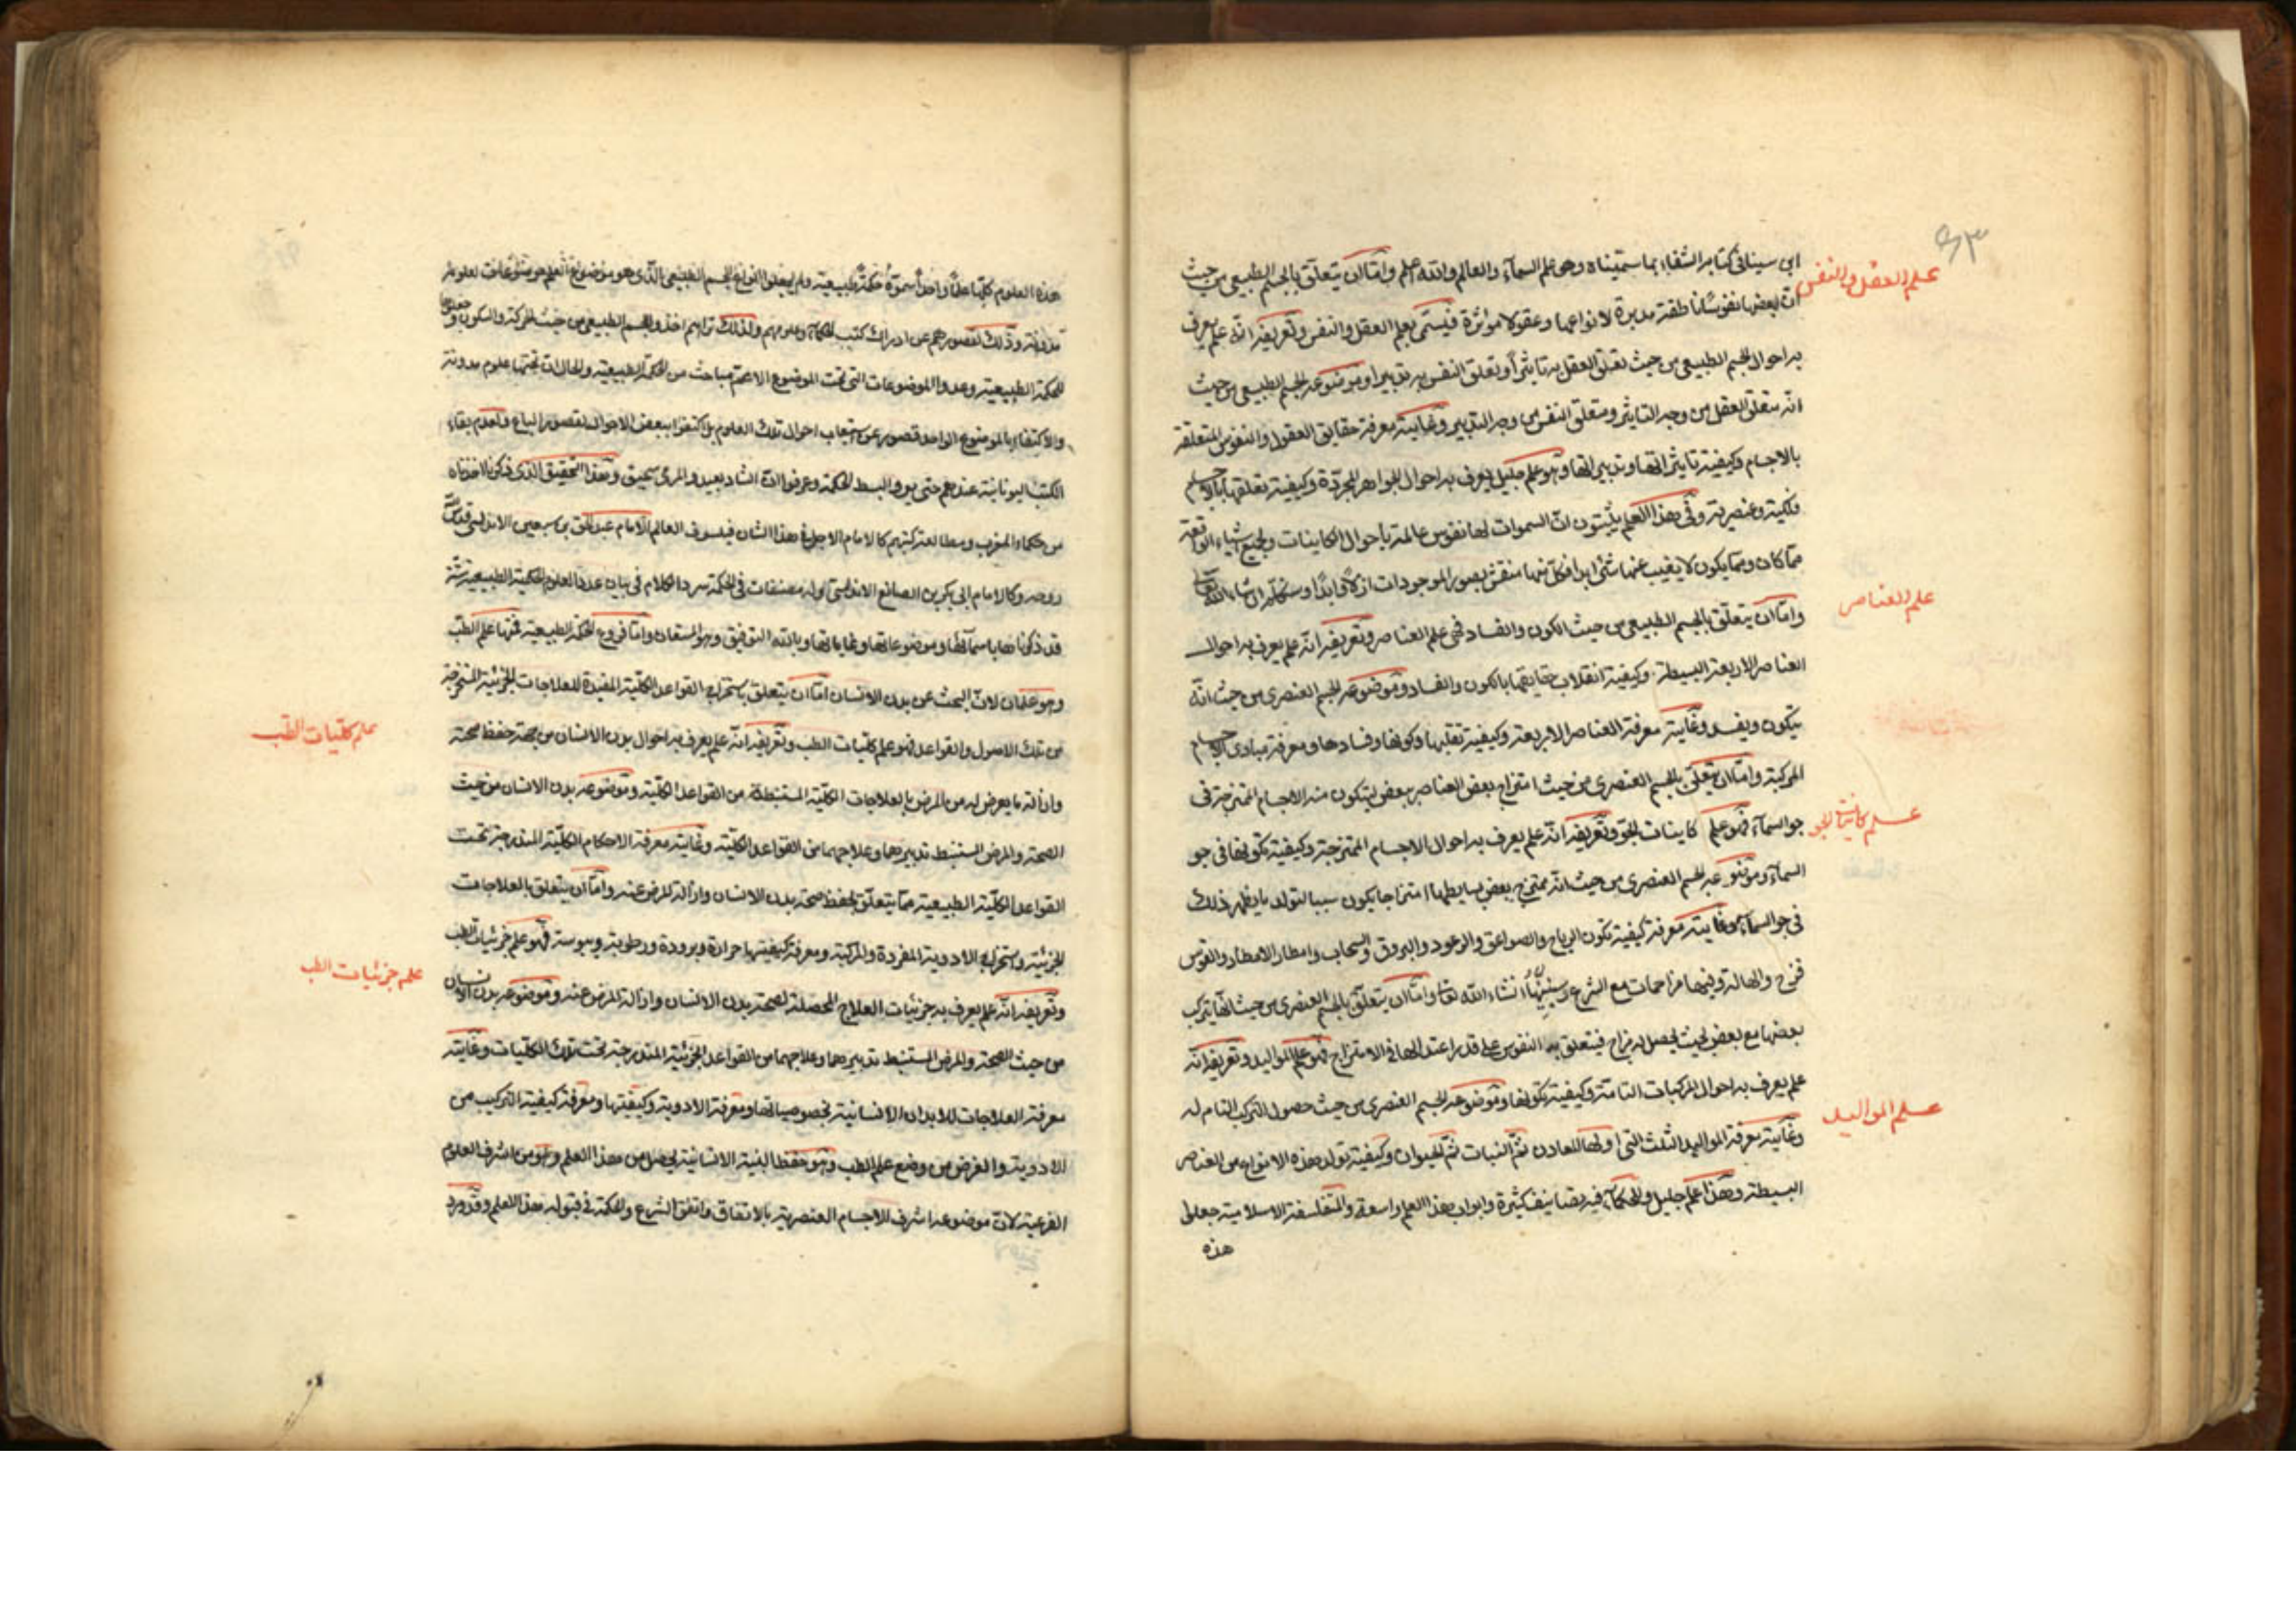 ٩٣
ابى سينا فى كتابه الشفاء بما سميناه وهو علم السمآء والعالم والله اعلم وامّا ان يتعلّق بالجسم الطبيعى من حيث
علم العقل والنفس
ان لبعضها نفوسًا ناطقة مدبرة لانواعها وعقولا مؤثرة فيسمّى بعلم العقل والنفس وتعريفه انّه علم يعرف
به احوال الجسم الطبيعى من حيث تعلق العقل به تاثيرًا وتعلق النفس به تدبيرا وموضوعه الجسم الطبيعى من حيث
انه متعلق العقل من وجه التاثير ومتعلق النفس من وجه التدبير وغايته معرفة حقايق العقول والنفوس المتعلقة
بالاجسام وكيفية تاثيراتها وتدبيراتها وهو علم جليل يعرف به احوال الجواهر المجرّدة وكيفية تعلقها بالاجسام
فلكية وعنصرية وفى هذا العلم يثبتون انّ السموات لها نفوس عالمة باحوال الكاينات وبجميع الاشياء الواقعة
مما كان ومما يكون لا يغيب عنها شئ ابدا فكل منها منقش بصور الموجودات ازلًا وابدًا وسنتكلم ان شاء الله تعالى
علم العناصر
وامّا ان يتعلّق بالجسم الطبيعى من حيث الكون والفساد فهى علم العناصر وتعريفه انّه علم يعرف به احوال
العناصر الاربعة البسيطة وكيفية انقلاب حقايقها بالكون والفساد وموضوعه الجسم العنصرى من حيث انّه
يتكون ويفسد وغايته معرفة العناصر الاربعة وكيفية تقلبها وكونها وفسادها ومعرفة مبادى الاجسام
المركبة وامّا ان يتعلّق بالجسم العنصرى من حيث امتزاج بعض العناصر ببعض ليتكون منه الاجسام الممتزجة فى
علم كاينات الجو
جو السمآء فهو علم كاينات الجوّ وتعريفه انّه علم يعرف به احوال الاجسام الممتزجة وكيفية تكونها فى جو
السمآء وموضوعه الجسم العنصرى من حيث انّه يمتزج بعض بسايطها امتزاجا يكون سببا لتولد ما يظهر ذلك
فى جو السمآء وغايته معرفة كيفية تكون الرياح والصواعق والرعود والبروق والسحاب وامطار الامطار والقوس
قزح والهالة وفيها مزاحمات مع الشرع وسنبيّنها انشاء الله تعالى وامّا ان يتعلّق بالجسم العنصرى من حيث انّها يتركب
بعضها مع بعض بحيث يحصل له مزاج فيتعلق به النفوس على قدر اعتدالها فى الامتزاج فهو علم المواليد وتعريفه انّه
علم المواليد
علم يعرف به احوال المركبات التامة وكيفية تكونها وموضوعه الجسم العنصرى من حيث حصول التركيب التام له
وغايته معرفة المواليد الثلث التى اولها المعادن ثمّ النبات ثمّ الحيوان وكيفية تولد هذه الانواع من العناصر
البسيطة وهذا علم جليل وللحكمآء فيه تصانيف كثيرة وابواب هذا العلم واسعة والمتفلسفة الاسلامية جعلوا
هذه
هذه العلوم كلّها علمًا واحدًا سموه حكمة طبيعية ولم يجعلوا انواع الجسم الطبيعى الذى هو موضوع
مدونة وذلك لقصورهم عن ادراك كتب الحكمآء وعلومهم ولذلك تراهم اخذوا الجسم الطبيعى من حيث الحركة والسكون وجعلوها
للحكمة الطبيعية وعدوا الموضوعات التى تحت الموضوع الاعم مباحث من الحكمة الطبيعية والحال ان تحتها علوم مدونة
والاكتفاء بالموضوع الواحد قصور عن استيعاب احوال تلك العلوم بل اكتفوا ببعض الاحوال لقصور الباع ولعدم بقاء
الكتب اليونانية عندهم حتى يروا البسط الحكمة وعرفوا انّ الشاد بعيد والمرمى سحيق وهذا التحقيق الذى ذكرنا اخذناه
من حكماء المغرب ومطالعة كتبهم كالامام الاجل فى هذا الشان فيلسوف العالم الامام عبد الحق بن سبعين الاندلسى قدس
روحه وكالامام ابى بكر بن الصائغ الاندلسى وله مصنفات فى الحكمة سرد الكلام فى بيان عدد العلوم الحكمية الطبيعية
قد ذكرناها باسمآئها وموضوعاتها وغاياتها وبالله التوفيق وهو المستعان وامّا فروع الحكمة الطبيعية فمنها علم الطبّ
وهو علمان لانّ البحث عن بدن الانسان امّا ان يتعلق باستخراج القواعد الكلّية المفيدة للعلاجات الجزئية المستخرجة
علم كليات الطب
من تلك الاصول والقواعد فهو علم كليات الطب وتعريفه انّه علم يعرف به احوال بدن الانسان من جهة حفظ صحته
وازالة ما يعرض له من المرض بالعلاجات الكلّية المستنبطة من القواعد الكلّية وموضوعه بدن الانسان من حيث
الصحة والمرض المستنبط تدبيرهما وعلاجهما من القواعد الكلّية وغايته معرفة الاحكام الكلّية المندرجة تحت
القواعد الكلّية الطبيعية مما يتعلّق بحفظ صحة بدن الانسان وازالة المرض عنه وامّا ان يتعلق بالعلاجات
الجزئية واستخراج الادوية المفردة والمركبة ومعرفة كيفيتها حرارة وبرودة ورطوبة ويبوسة فهو علم جزئيات الطب
علم جزئيات الطب
وتعريفه انّه علم يعرف به جزئيات العلاج المحصلة لصحة بدن الانسان وازالة المرض عنه وموضوعه بدن الانسان
من حيث الصحة والمرض المستنبط تدبيرهما وعلاجهما من القواعد الجزئية المندرجة تحت تلك الكليات وغايته
معرفة العلاجات للابدان الانسانية بخصوصياتها ومعرفة الادوية وكيفيتها ومعرفة كيفية التركيب من
الادوية والغرض من وضع علم الطب وهو حفظ البنية الانسانية يحصل من هذا العلم وهو من اشرف العلوم
الفرعية لانّ موضوعه اشرف الاجسام العنصرية بالاتفاق واتفق الشرع والحكمة فى قبوله هذا العلم وقد ورد